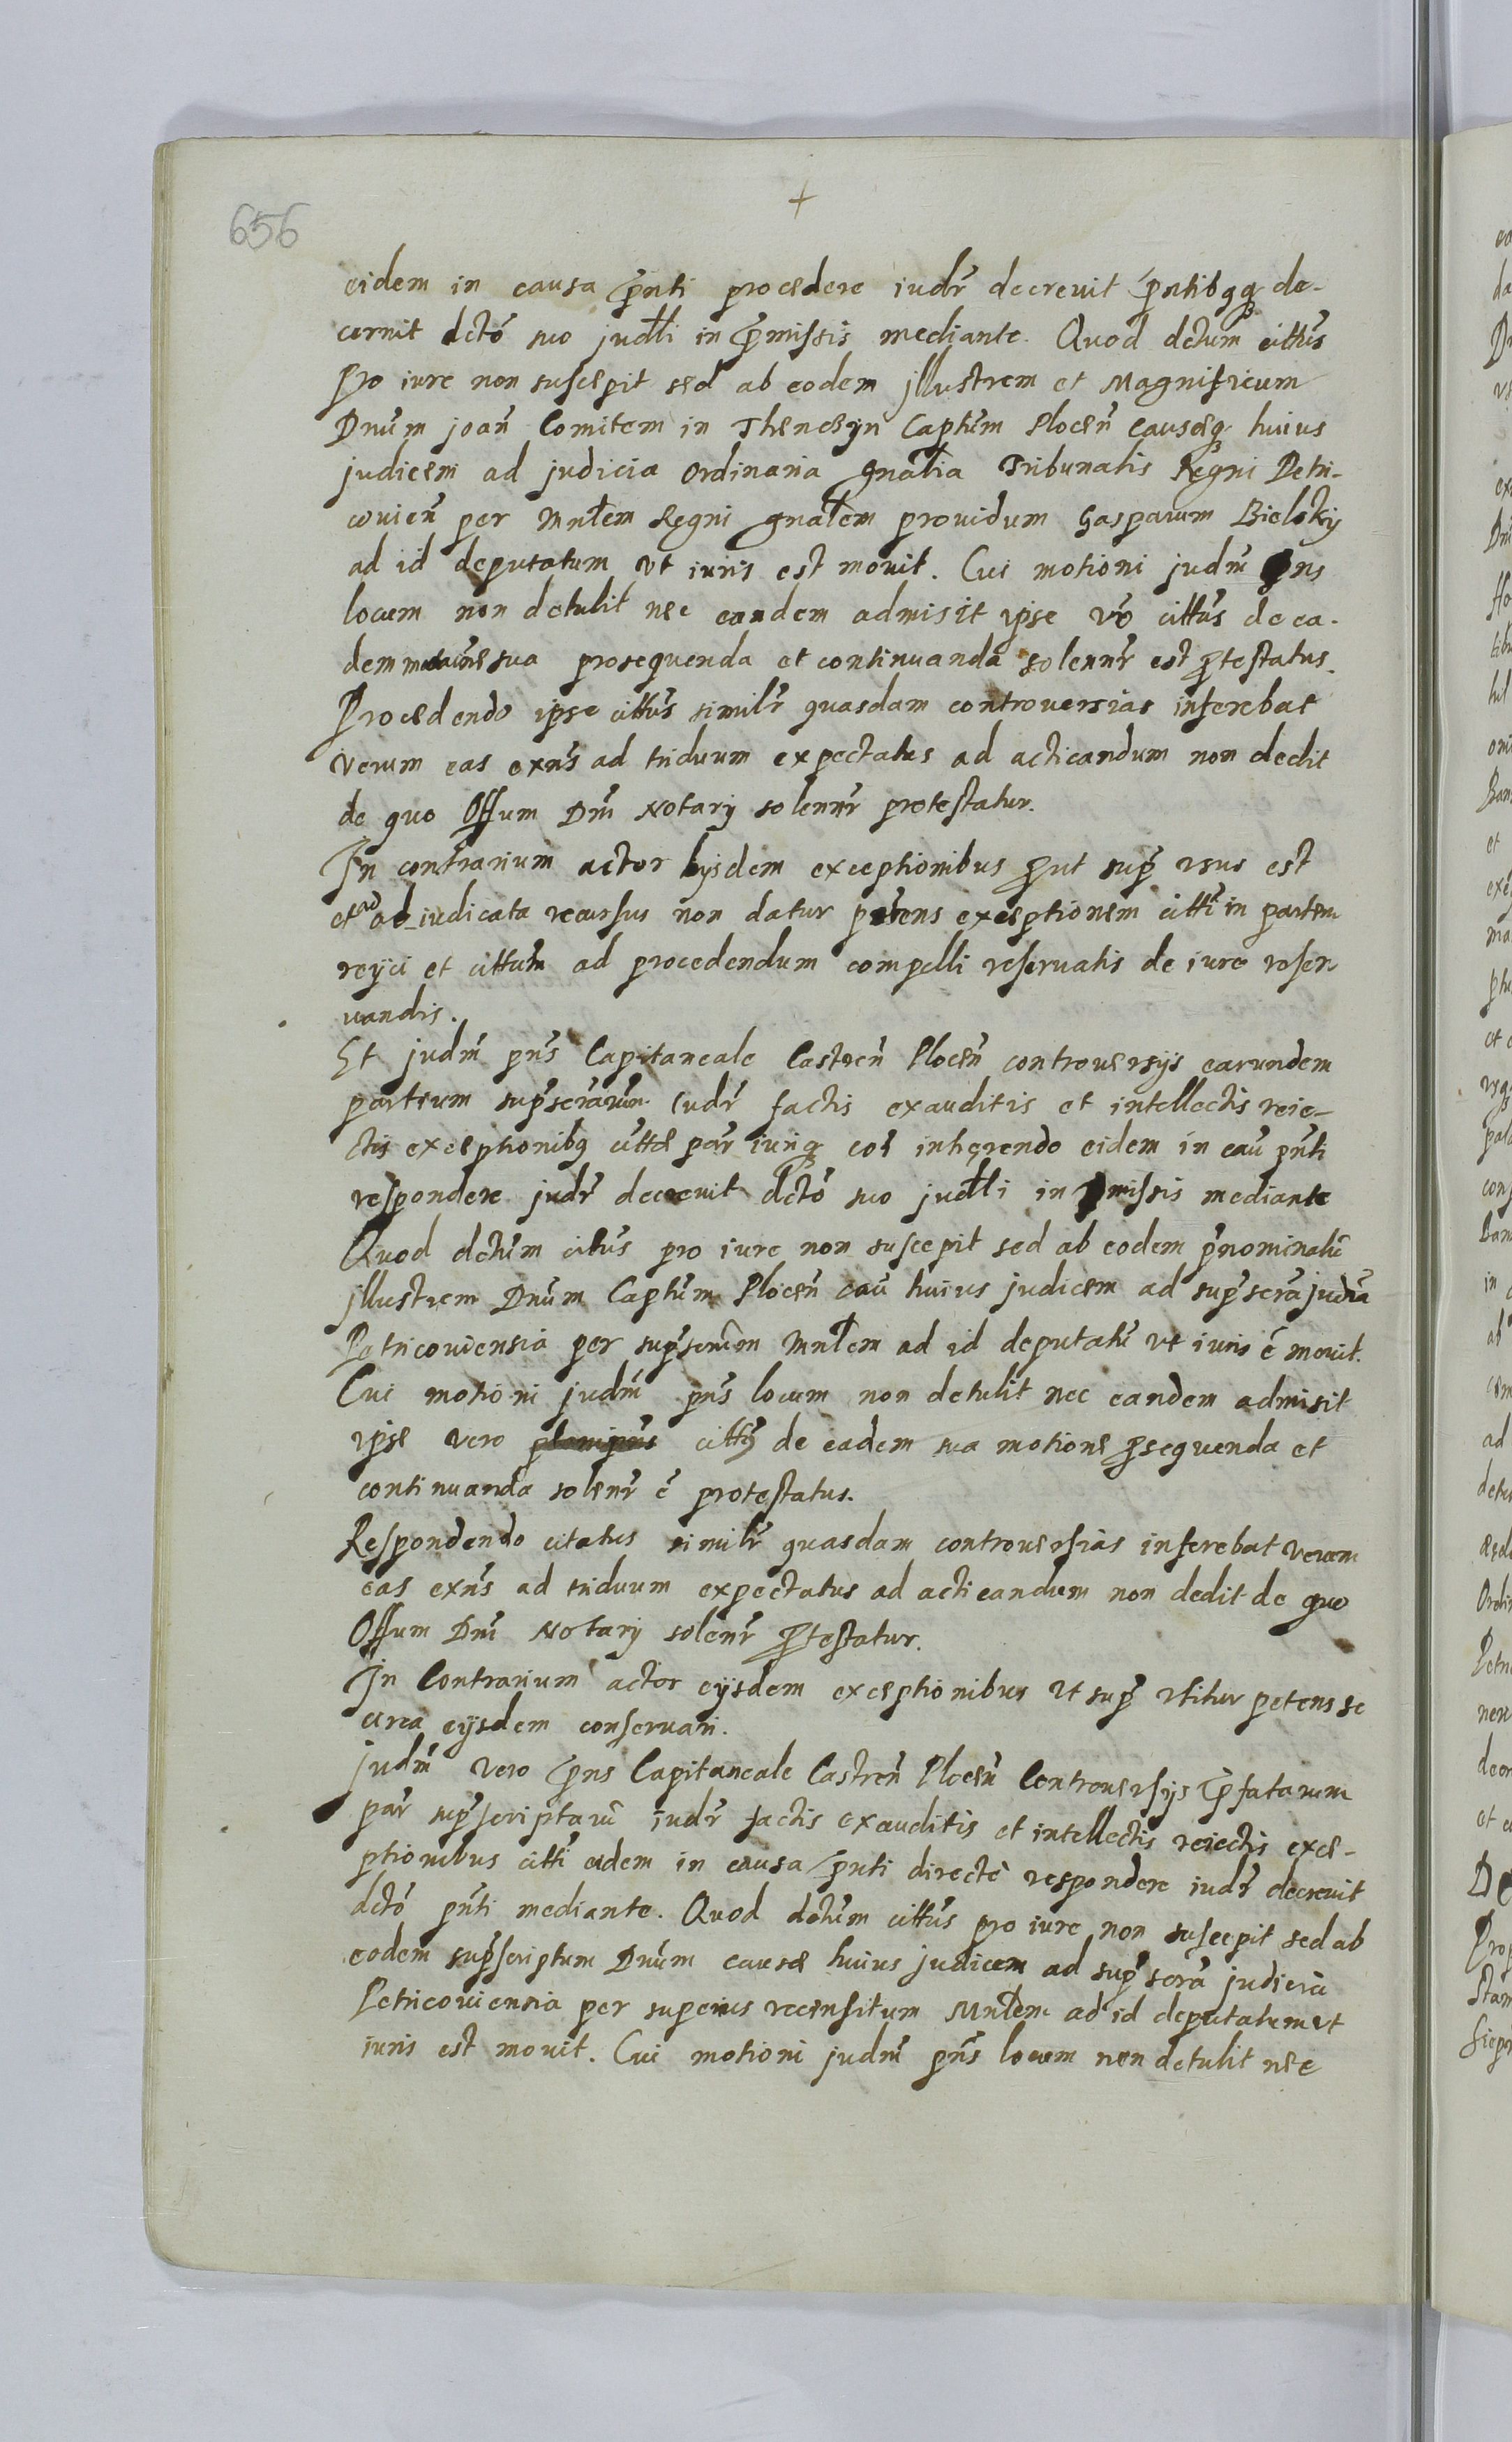 656
+
eidem in causa pñti procedere iudr̃ decreuit pñtibqq de-
cernit dctõ suo judłłi in p̃missis mediante. Quod dctum citt̃us
pro iure non suscepit sed ab eodem jllustrem et Magnificum
Dnũm joañ Comitem in Thenczyn Capt̃um Ploceñ causæq huius
judicem ad judicia ordinaria gnalia Tribunalis Regni Petri-
couieñ per Mnłem Regni gnałem prouidum Gasparum Bielsky
ad id deputatum vt iuris est mouit. Cui motioni judm̃ p̃ns
locum non detulit nec eandem admisit ipse vo citt̃us de ea-
dem motione sua prosequenda et continuanda solennr̃ est p̃testatus.
Procedendo ipse citt̃us similr̃ quasdam controuersias inferebat
verum eas exñs ad triduum expectatus ad acticandum non dedit
de quo Offum Dñi Notarij solennr̃ protestatur.
In contrarium actor eijsdem exceptionibus p̃ut sup̃ vsus est
et ad iudicata recursus non datur petens exceptionem citt̃i in partem
reijci et citt̃um ad procedendum compelli reseruatis de iure reser
uandis.
Et judm̃ pñs Capitaneale Castreñ Ploceñ controuersijs earundem
partium sup̃scrarum iudr̃ factis exauditis et intellectis reie-
ctis exceptionibq citt̃æ par̃ iuriq coĩ inhęrendo eidem in cau pñti
respondere judr̃ decreuit dctõ suo judłłi in p̃missis mediante
Quod dctum citt̃us pro iure non suscepit sed ab eodem p̃nominatũ
jllustrem Dnũm Captũm Ploceñ cau huius judicem ad sup̃scra judia
Petricouiensia per sup̃scrum Mnłem ad id deputatũ vt iuris ẽ mouit.
Cui motioni judm̃ pñs locum non detulit nec eandem admisit
ipse vero citt̃us de eadem sua motione p̃sequenda et
continuanda solenr̃ ẽ protestatus.
Respondendo citatus similr̃ quasdam controuersias inferebat verum
eas exñs ad triduum expectatus ad acticandum non dedit de quo
Offum Dñi Notarij solenr̃ p̃testatur.
In Contrarium actor eijsdem exceptionibus vt sup̃ vtitur petens se
circa eijsdem conseruari.
judm̃ vero p̃ns Capitaneale Castreñ Ploceñ Controuersijs p̃fatarum
par̃ sup̃scriptarũ iudr̃ factis exauditis et intellectis reiectis exce-
ptionibus citt̃i eidem in causa pñti directè respondere iudr̃ decreuit
dctõ pñti mediante. Quod dctum citt̃us pro iure non suscepit sed ab
eodem sup̃scriptum Dnũm causæ huius judicem ad sup̃scra judicia
Petricouiensia per superius recensitum Mnłem ad id deputatum vt
iuris est mouit. Cui motioni judm̃ pñs locum non detulit nec